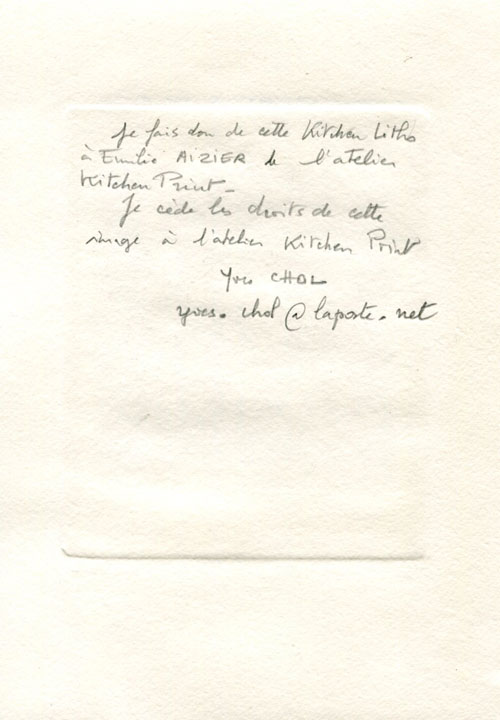 Je fais don de cette Kitchen Litho
à Emilio AIZIER de l'atelier
Kitchen Print_
Je cède les droits de cette
image à l'atelier Kitchen Print
Yves CHOL
yves.chol@laposte.net